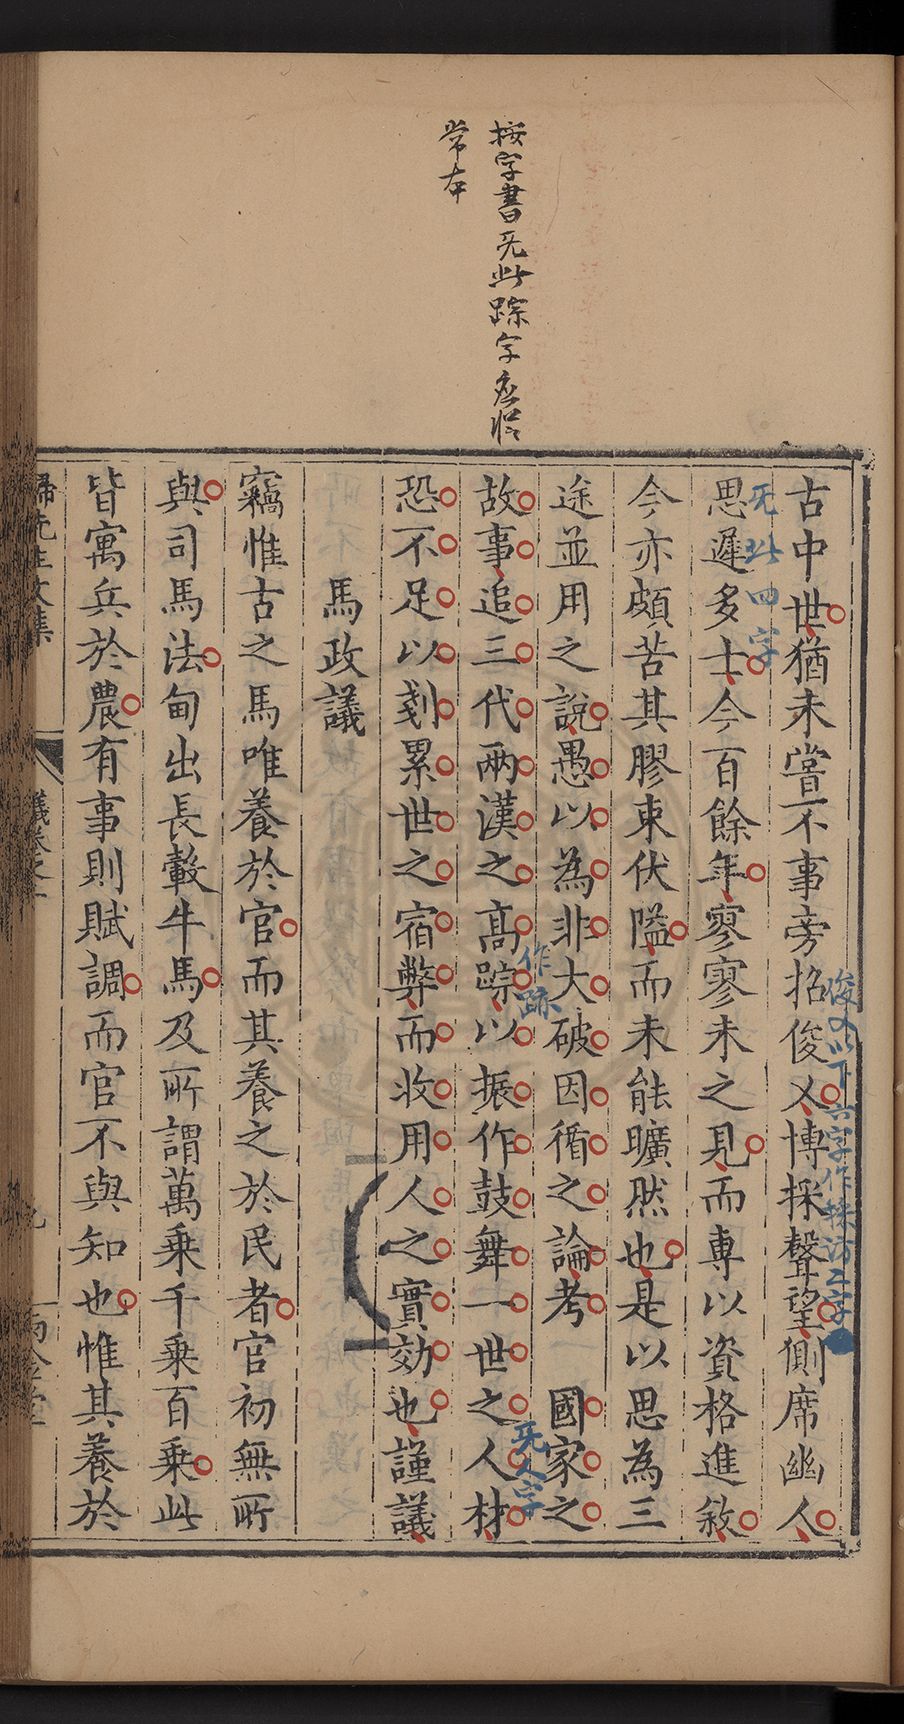 按字書旡此踪字應從
常本
古中世猶未嘗不事旁招俊乂博採聲望側席幽人
俊乂以下六字作採访二字
思遲多士今百餘年寥寥未之見而專以資格進敘
旡此四字
今亦頗苦其膠束伏隘而未能曠然也是以思為三
途並用之說愚以為非大破因循之論考國家之
故事追三代兩漢之高踪以振作鼓舞一世之人材
作跡
旡人字
恐不足以刬累世之宿弊而收用人之實効也謹議
馬政議
竊惟古之馬唯養於官而其養之於民者官初無所
與司馬法甸出長轂牛馬及所謂萬乘千乘百乘此
皆寓兵於農有事則賦調而官不與知也惟其養於
歸先生文集
議卷之
九